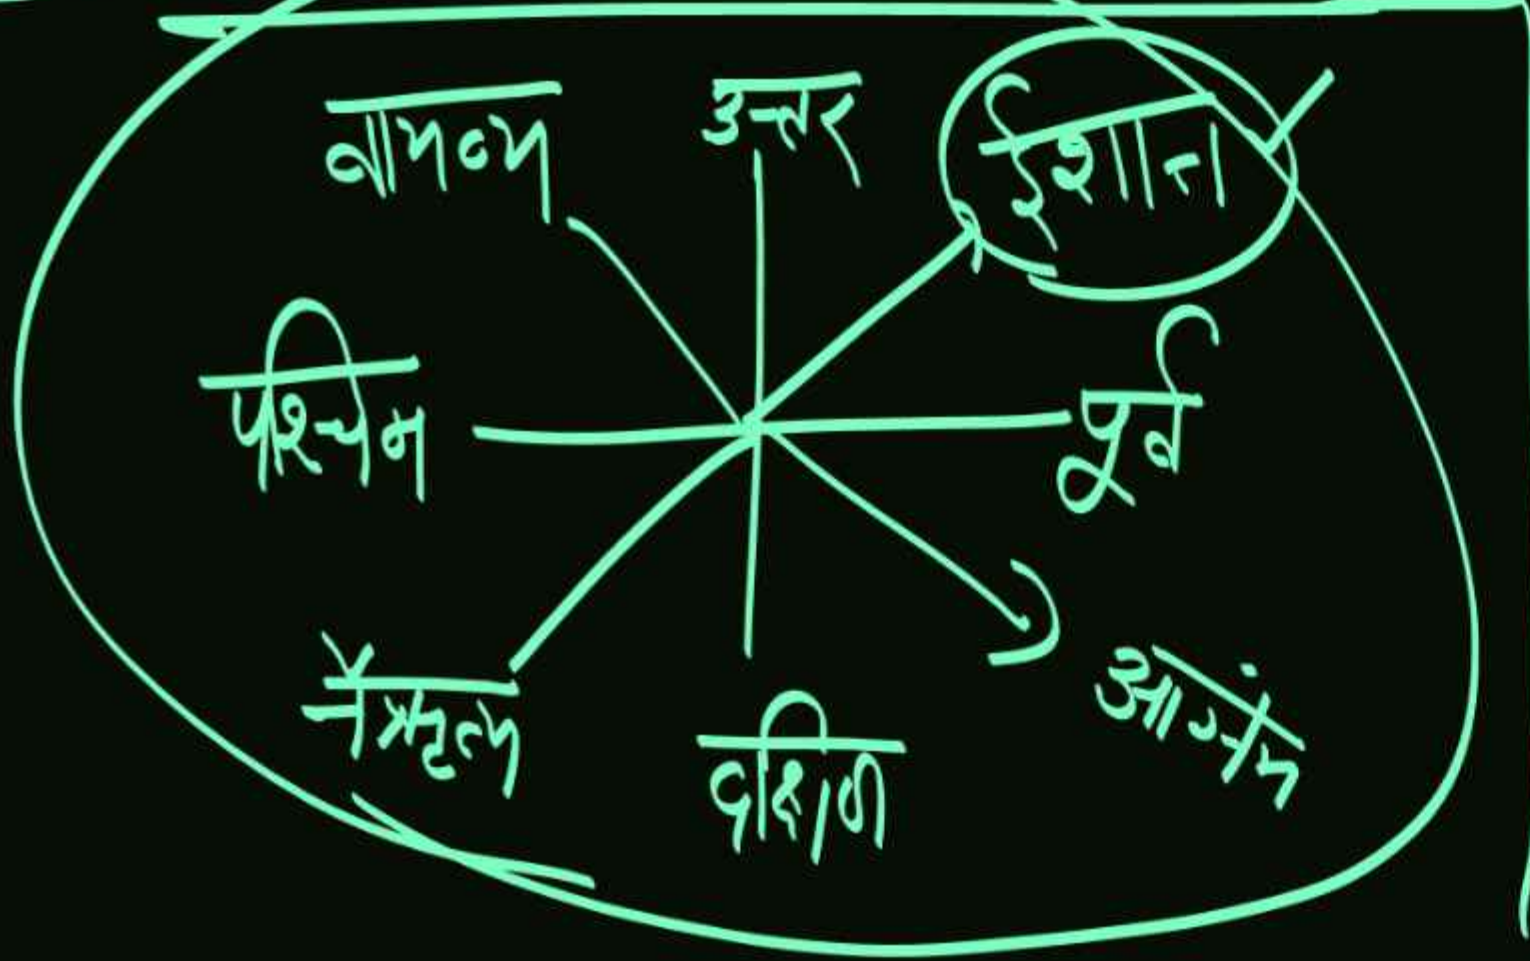 वायव्य उत्तर ईशान
पश्चिम पूर्व
नैऋत्य दक्षिण आग्नेय